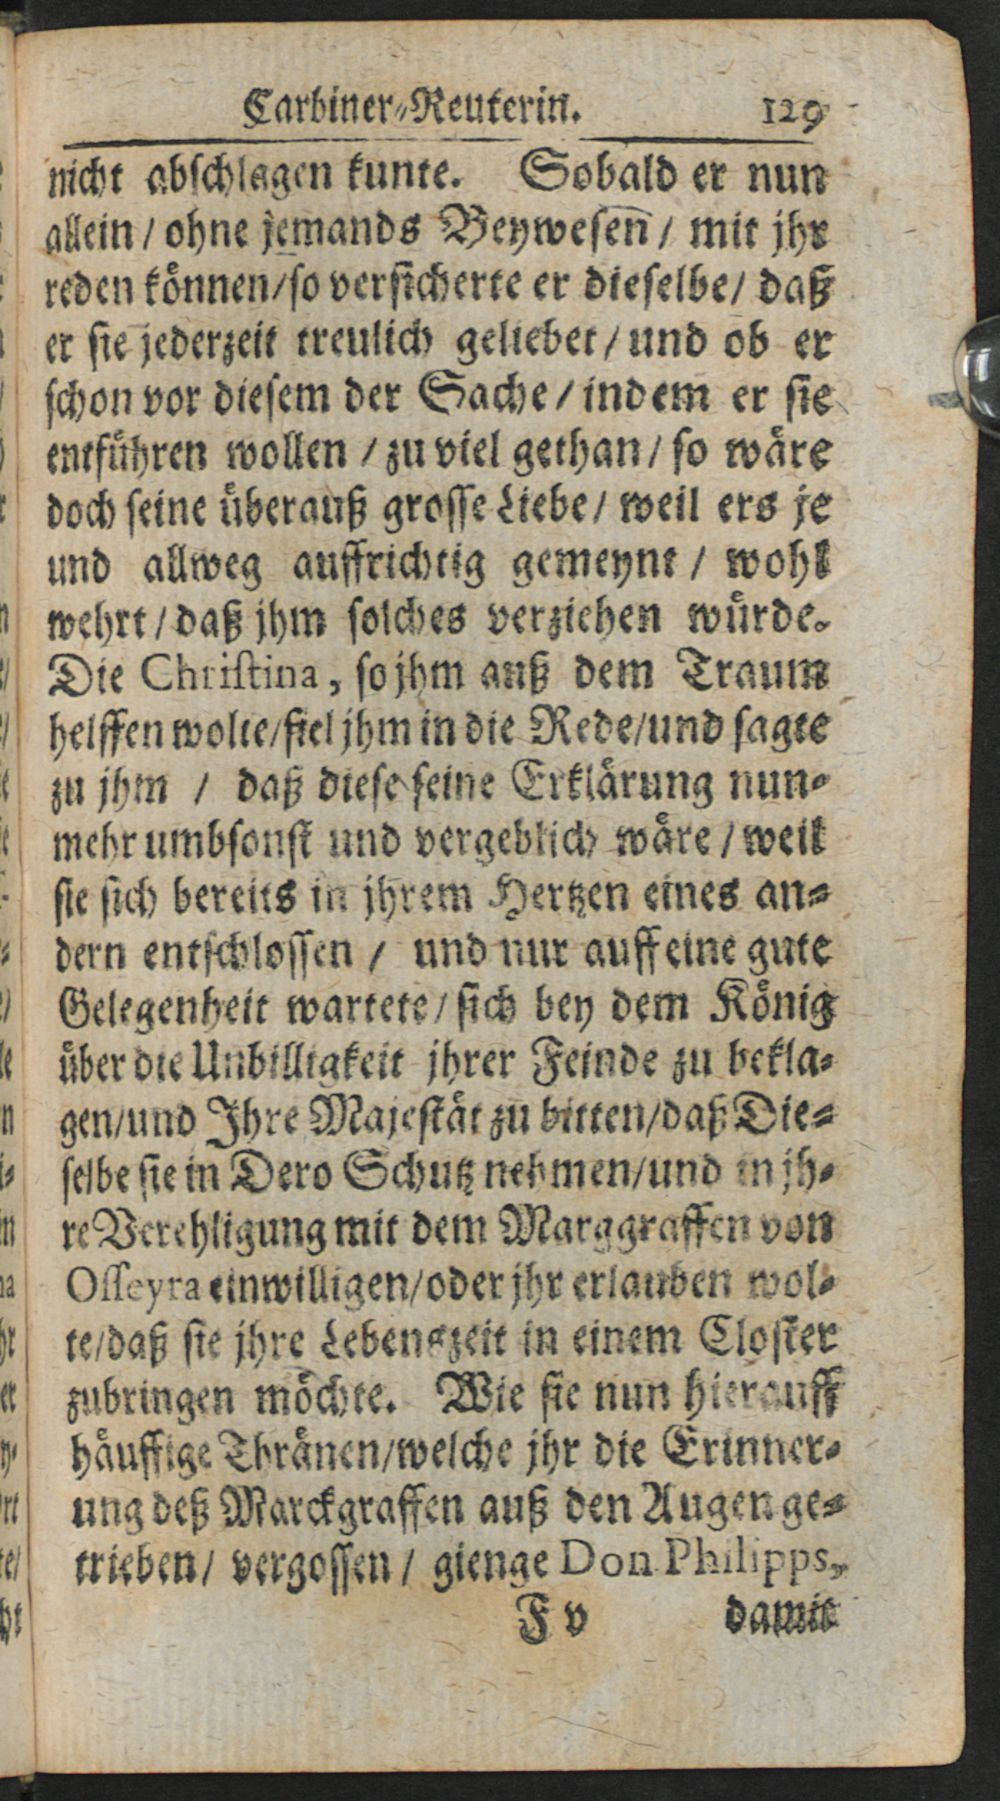 Carbiner-Reuterin. 129
nicht abschlagen kunte. Sobald er nun
allein / ohne jemands Beywesen̄ / mit jhr
reden können/so versicherte er dieselbe/ daß
er sie jederzeit treulich geliebet / und ob er
schon vor diesem der Sache / indem er sie
entführen wollen / zu viel gethan / so wäre
doch seine überauß grosse Liebe / weil ers je
und allweg auffrichtig gemeynt / wohl
wehrt / daß jhm solches verziehen würde.
Die Christina, so jhm auß dem Traum
helffen wolte/fiel jhm in die Rede/und sagte
zu jhm / daß diese seine Erklärung nun-
mehr umbsonst und vergeblich wäre / weil
sie sich bereits in jhrem Hertzen eines an-
dern entschlossen / und nur auff eine gute
Gelegenheit wartete/ sich bey dem König
über die Unbilligkeit jhrer Feinde zu bekla-
gen/und Ihre Majestät zu bitten/daß Die-
selbe sie in Dero Schutz nehmen/und in jh-
re Verehligung mit dem Marggraffen von
Osseyra einwilligen/oder jhr erlauben wol-
te/daß sie jhre Lebenszeit in einem Closter
zubringen möchte. Wie sie nun hierauff
häuffige Thränen/welche jhr die Erinner-
ung deß Marckgraffen auß den Augen ge-
trieben / vergossen / gienge Don Philipps,
F v damit